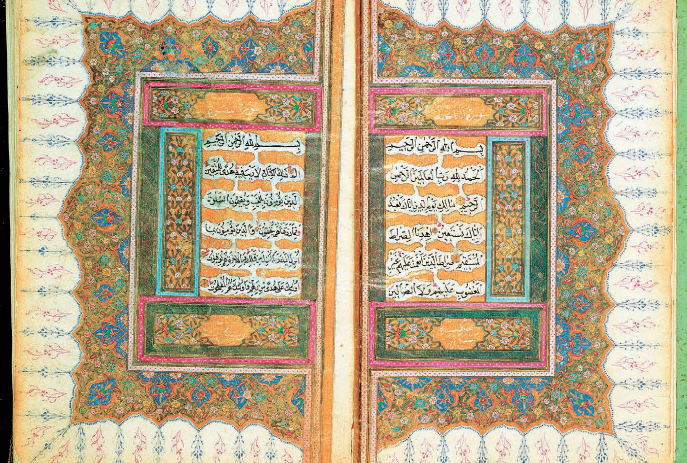 بسم الله الرحمن الرحيم
الحمد لله رب العالمين الرحمن
الرحيم مالك يوم الدين اياك نعبد
واياك نستعين اهدنا الصراط
المستقيم صراط الذين انعمت عليهم غير
المغضوب عليهم ولا الضالين
بسم الله الرحمن الرحيم
الم ذلك الكتاب لا ريب فيه هدى للمتقين
الذين يؤمنون بالغيب ويقيمون الصلوة
ومما رزقناهم ينفقون والذين يؤمنون بما
انزل اليك وما انزل من قبلك وبالاخرة هم يوقنون
اولئك على هدى من ربهم واولئك هم المفلحون